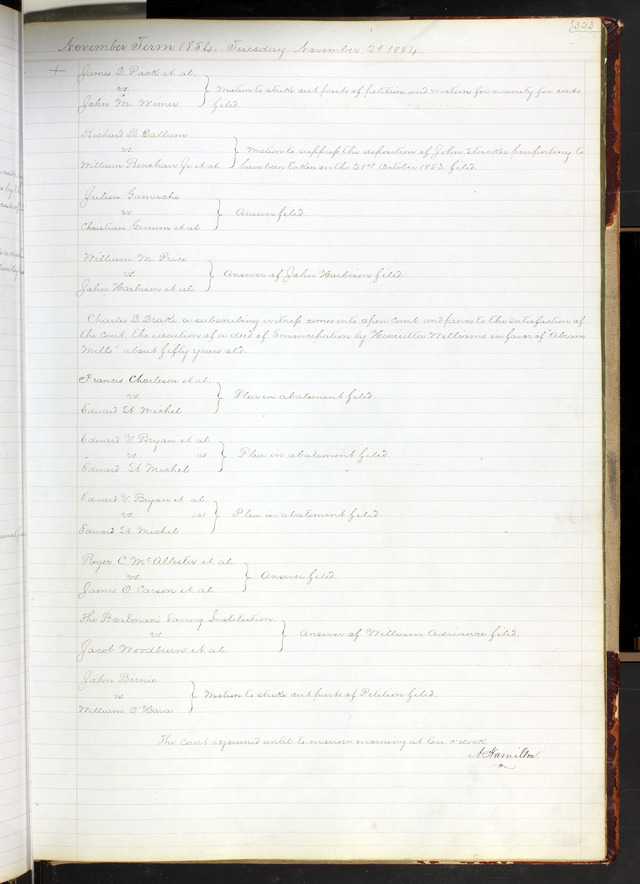 323
November Term 1854. Tuesday November 21 1854
James D. Pack et al.
vs
John M. Wimer
Motion to strike out parts of petition and motion for security for costs
filed.
Richard B. Dallam
vs
William Renshaw Jr et al
Motion to suppress the deposition of John Stricker purporting to
have been taken on the 21st October 1853. filed.
Julien Gamache
vs
Christian Grimm et al.
Answer filed.
William M. Price
vs
John Harbison et al
Answer of John Harbison filed.
Charles D. Drake a subscribing witness comes into open court and proves to the satisfaction of
the Court, the execution of a deed of Emancipation by Henrietta Williams in favor of "Abram
Mills" about fifty years old.
Francis Charleson et al.
vs.
Edward St Michel
Plea in abatement filed.
Edward V. Bryan et al
vs
Edward St Michel
Plea in abatement filed.
Edward V. Bryan et al.
vs
Edward St. Michel
Plea in abatement filed.
Roger C. McAllister et al.
vs.
James O. Carson et al.
Answer filed.
The Boatman's Saving Institution
vs.
Jacob Woodburn et al.
Answer of William Adriance filed.
John Birnie
vs
William O'Hara
Motion to strike out parts of Petition filed.
The Court adjourned until to morrow morning at ten o'clock
A. Hamilton